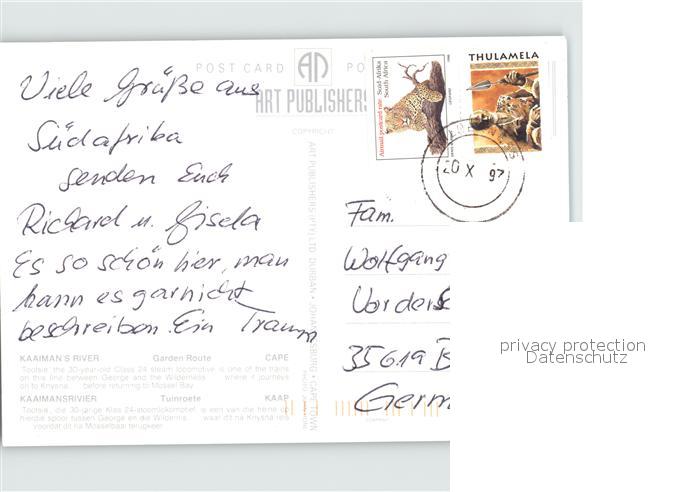 POST CARD
AN
PO
ART PUBLISHERS
COPYRIGHT
Viele Grüße aus
Südafrika
senden Euch
Richard u. Gisela
Es so schön hier, man
kann es garnicht
beschreiben. Ein Traum
Suid-Afrika
South Africa
Airmail postcard rate
THULAMELA
20 X 97
Fam.
Wolfgang
Vorders
35619 B
Germ
ART PUBLISHERS (PTY) LTD DURBAN • JOHANNESBURG • CAPE TOWN
KAAIMAN'S RIVER Garden Route CAPE
Tootsie, the 30-year-old Class 24 steam locomotive is one of the trains
on this line between George and the Wilderness where it journeys
on to Knysna before returning to Mossel Bay
KAAIMANSRIVIER Tuinroete KAAP
Tootsie, die 30-jarige Klas 24-stoomlokomotief, is een van die treine op
hierdie spoor tussen George en die Wildernis waar dit na Knysna reis
voordat dit na Mosselbaai terugkeer
privacy protection
Datenschutz